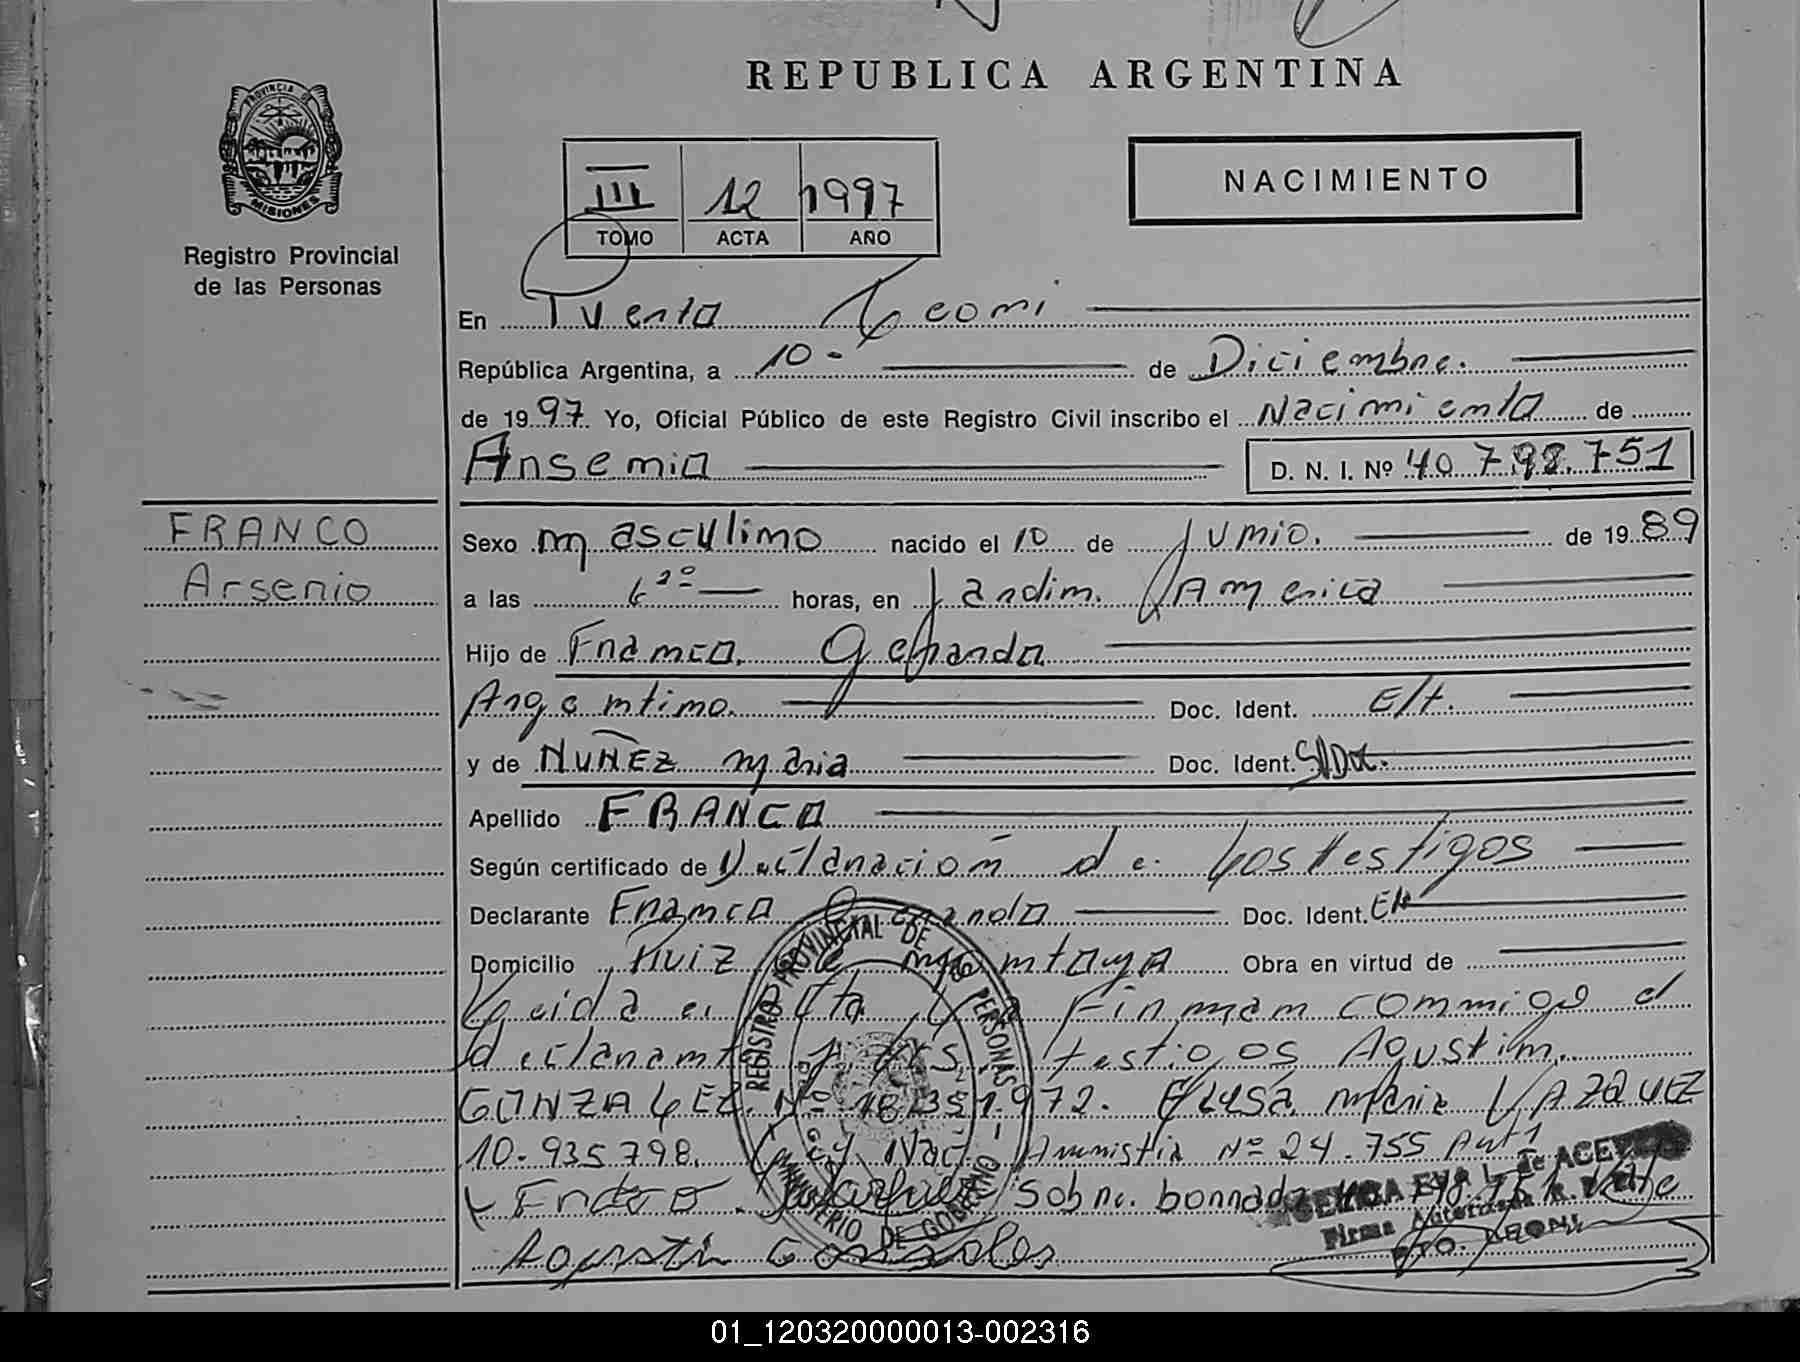 REPUBLICA ARGENTINA
PROVINCIA DE
MISIONES
Registro Provincial
de las Personas
III 12 1997
TOMO ACTA AÑO
NACIMIENTO
En Puerto Leoni
República Argentina, a 10- de Diciembre.
de 1997 Yo, Oficial Público de este Registro Civil inscribo el Nacimiento de
Arsenio D. N. I. Nº 40.798.751
FRANCO
Arsenio
Sexo masculino nacido el 10 de Junio. de 1989
a las horas, en Jardin America
Hijo de Franco Gerardo
Argentino. Doc. Ident. E/t.
y de NUÑEZ Maria Doc. Ident. S/Doc.
Apellido FRANCO
Según certificado de Declaración de Los testigos
Declarante Franco Gerardo Doc. Ident. E/t
Domicilio Ruiz de Montoya Obra en virtud de
Leida el Acta La Firman conmigo el
declarante y los testigos Agustin
GONZALEZ Nº 18.351.972. ELUSA Maria VAZQUEZ
10.935.798. Ley Nac. Amnistia Nº 24.755 Art 1
Sobre borrado 40.798.751 Vale
Agustin Gonzales
REGISTRO PROVINCIAL DE LAS PERSONAS
MINISTERIO DE GOBIERNO
EVA L. de ACEVEDO
Firma Autorizada R. P. P.
PTO. LEONI
01_120320000013-002316